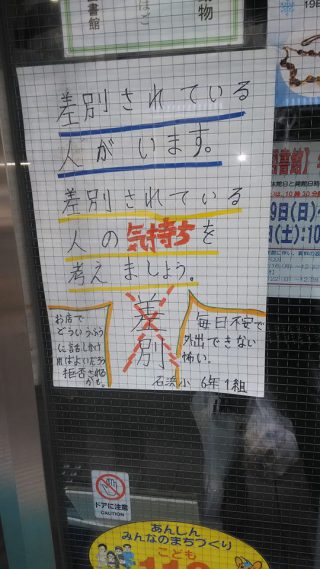 書館
ほご
物
19日
差別されている
人がいます。
差別されている
人の気持ちを
考えましょう。
差別
お店で
どういうふう
に話しかけ
ればよいだろう
拒否される
かも。
毎日不安で
外出できない
怖い。
石浜小 6年1組
書館】
9日(日)
(土):10
ドアに注意
CAUTION
あんしん
みんなのまちづくり
こども
110